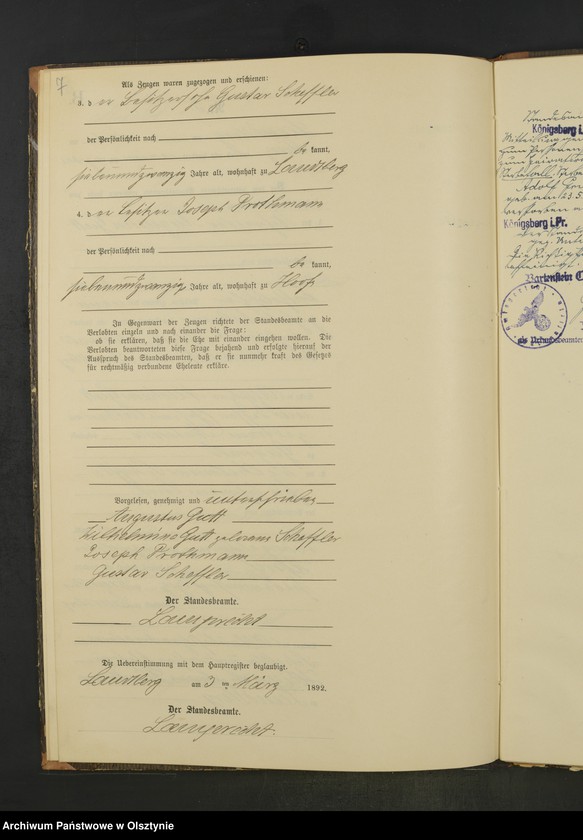 7
Als Zeugen waren zugezogen und erschienen:
3. der Besitzersohn Gustav Scheffler
der Persönlichkeit nach
be kannt,
siebenundzwanzig Jahre alt, wohnhaft zu Landsberg
4. der Besitzer Joseph Prothmann
der Persönlichkeit nach
be kannt,
siebenundzwanzig Jahre alt, wohnhaft zu Hoof
In Gegenwart der Zeugen richtete der Standesbeamte an die
Verlobten einzeln und nach einander die Frage:
ob sie erklären, daß sie die Ehe mit einander eingehen wollen. Die
Verlobten beantworteten diese Frage bejahend und erfolgte hierauf der
Ausspruch des Standesbeamten, daß er sie nunmehr kraft des Gesetzes
für rechtmäßig verbundene Eheleute erkläre.
Vorgelesen, genehmigt und unterschrieben
Augustus Gutt
Wilhelmine Gutt geborene Scheffler
Joseph Prothmann
Gustav Scheffler
Der Standesbeamte.
Lamprecht
Die Uebereinstimmung mit dem Hauptregister beglaubigt.
Landsberg am 3 ten März 1892.
Der Standesbeamte.
Lamprecht.
Königsberg i.
Adolf
geb. am 23.5.
verstorben
Königsberg i.Pr.
Bartenstein
als
Archiwum Państwowe w Olsztynie